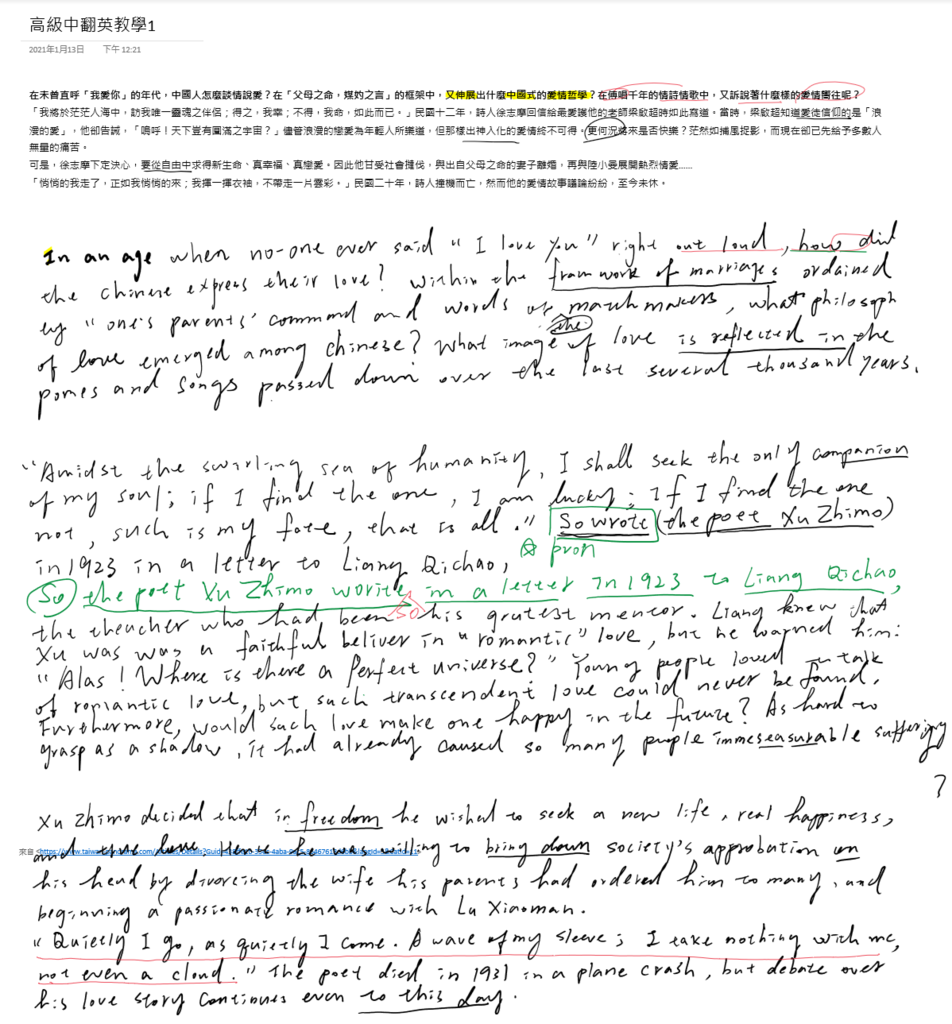 高級中翻英教學1
2021年1月13日 下午 12:21
在未曾直呼「我愛你」的年代,中國人怎麼談情說愛?在「父母之命,媒妁之言」的框架中,又伸展出什麼中國式的愛情哲學?在傳唱千年的情詩情歌中,又訴說著什麼樣的愛情嚮往呢?
「我將於茫茫人海中,訪我唯一靈魂之伴侶;得之,我幸;不得,我命,如此而已。」民國十二年,詩人徐志摩回信給最愛護他的老師梁啟超時如此寫道。當時,梁啟超知道愛徒信仰的是「浪
漫的愛」,他卻告誡,「嗚呼!天下豈有圓滿之宇宙?」儘管浪漫的戀愛為年輕人所樂道,但那樣出神入化的愛情終不可得。更何況將來是否快樂?茫然如捕風捉影,而現在卻已先給予多數人
無量的痛苦。
可是,徐志摩下定決心,要從自由中求得新生命、真幸福、真戀愛。因此他甘受社會撻伐,與出自父母之命的妻子離婚,再與陸小曼展開熱烈情愛......
「悄悄的我走了,正如我悄悄的來;我揮一揮衣袖,不帶走一片雲彩。」民國二十年,詩人撞機而亡,然而他的愛情故事議論紛紛,至今未休。
In an age when no-one ever said "I love you" right out loud, how did
the chinese express their love? Within the framwork of marriages ordained
by "one's parents' command and words of matchmakers, what philosoph
of love emerged among chinese? What image of the love is reflected in the
pomes and songs passed down over the last several thousand years.
"Amidst the swirling sea of humanity, I shall seek the only companion
of my soul; if I find the one, I am lucky; If I find the one
not, such is my fate, that is all." So wrote (the poet Xu Zhimo)
in 1923 in a letter to Liang Qichao, pron
So the poet Xu Zhimo worite in a letter in 1923 to Liang Qichao,
the theucher who had been so his gratest mentor. Liang knew that
Xu was was a faithful beliver in "romantic" love, but he warned him:
"Alas! Where is there a Perfect universe?" Young people loved to talk
of romantic love, but such transcendent love could never be found.
Furthermore, would such love make one happy in the future? As hard to
grasp as a shadow, it had already caused so many people immeseasurable suffering
?
Xu Zhimo decided that in freedom he wished to seek a new life, real happiness,
and true love. Hence he was willing to bring down society's approbation on
來自 <https://www.taiwan
his head by divorcing the wife his parents had ordered him to marry, and
beginning a passionate romance with Lu Xiaoman.
"Quietly I go, as quietly I come. A wave of my sleeve; I take nothing with me,
not even a cloud." The poet died in 1931 in a plane crash, but debate over
his love story continues even to this day.